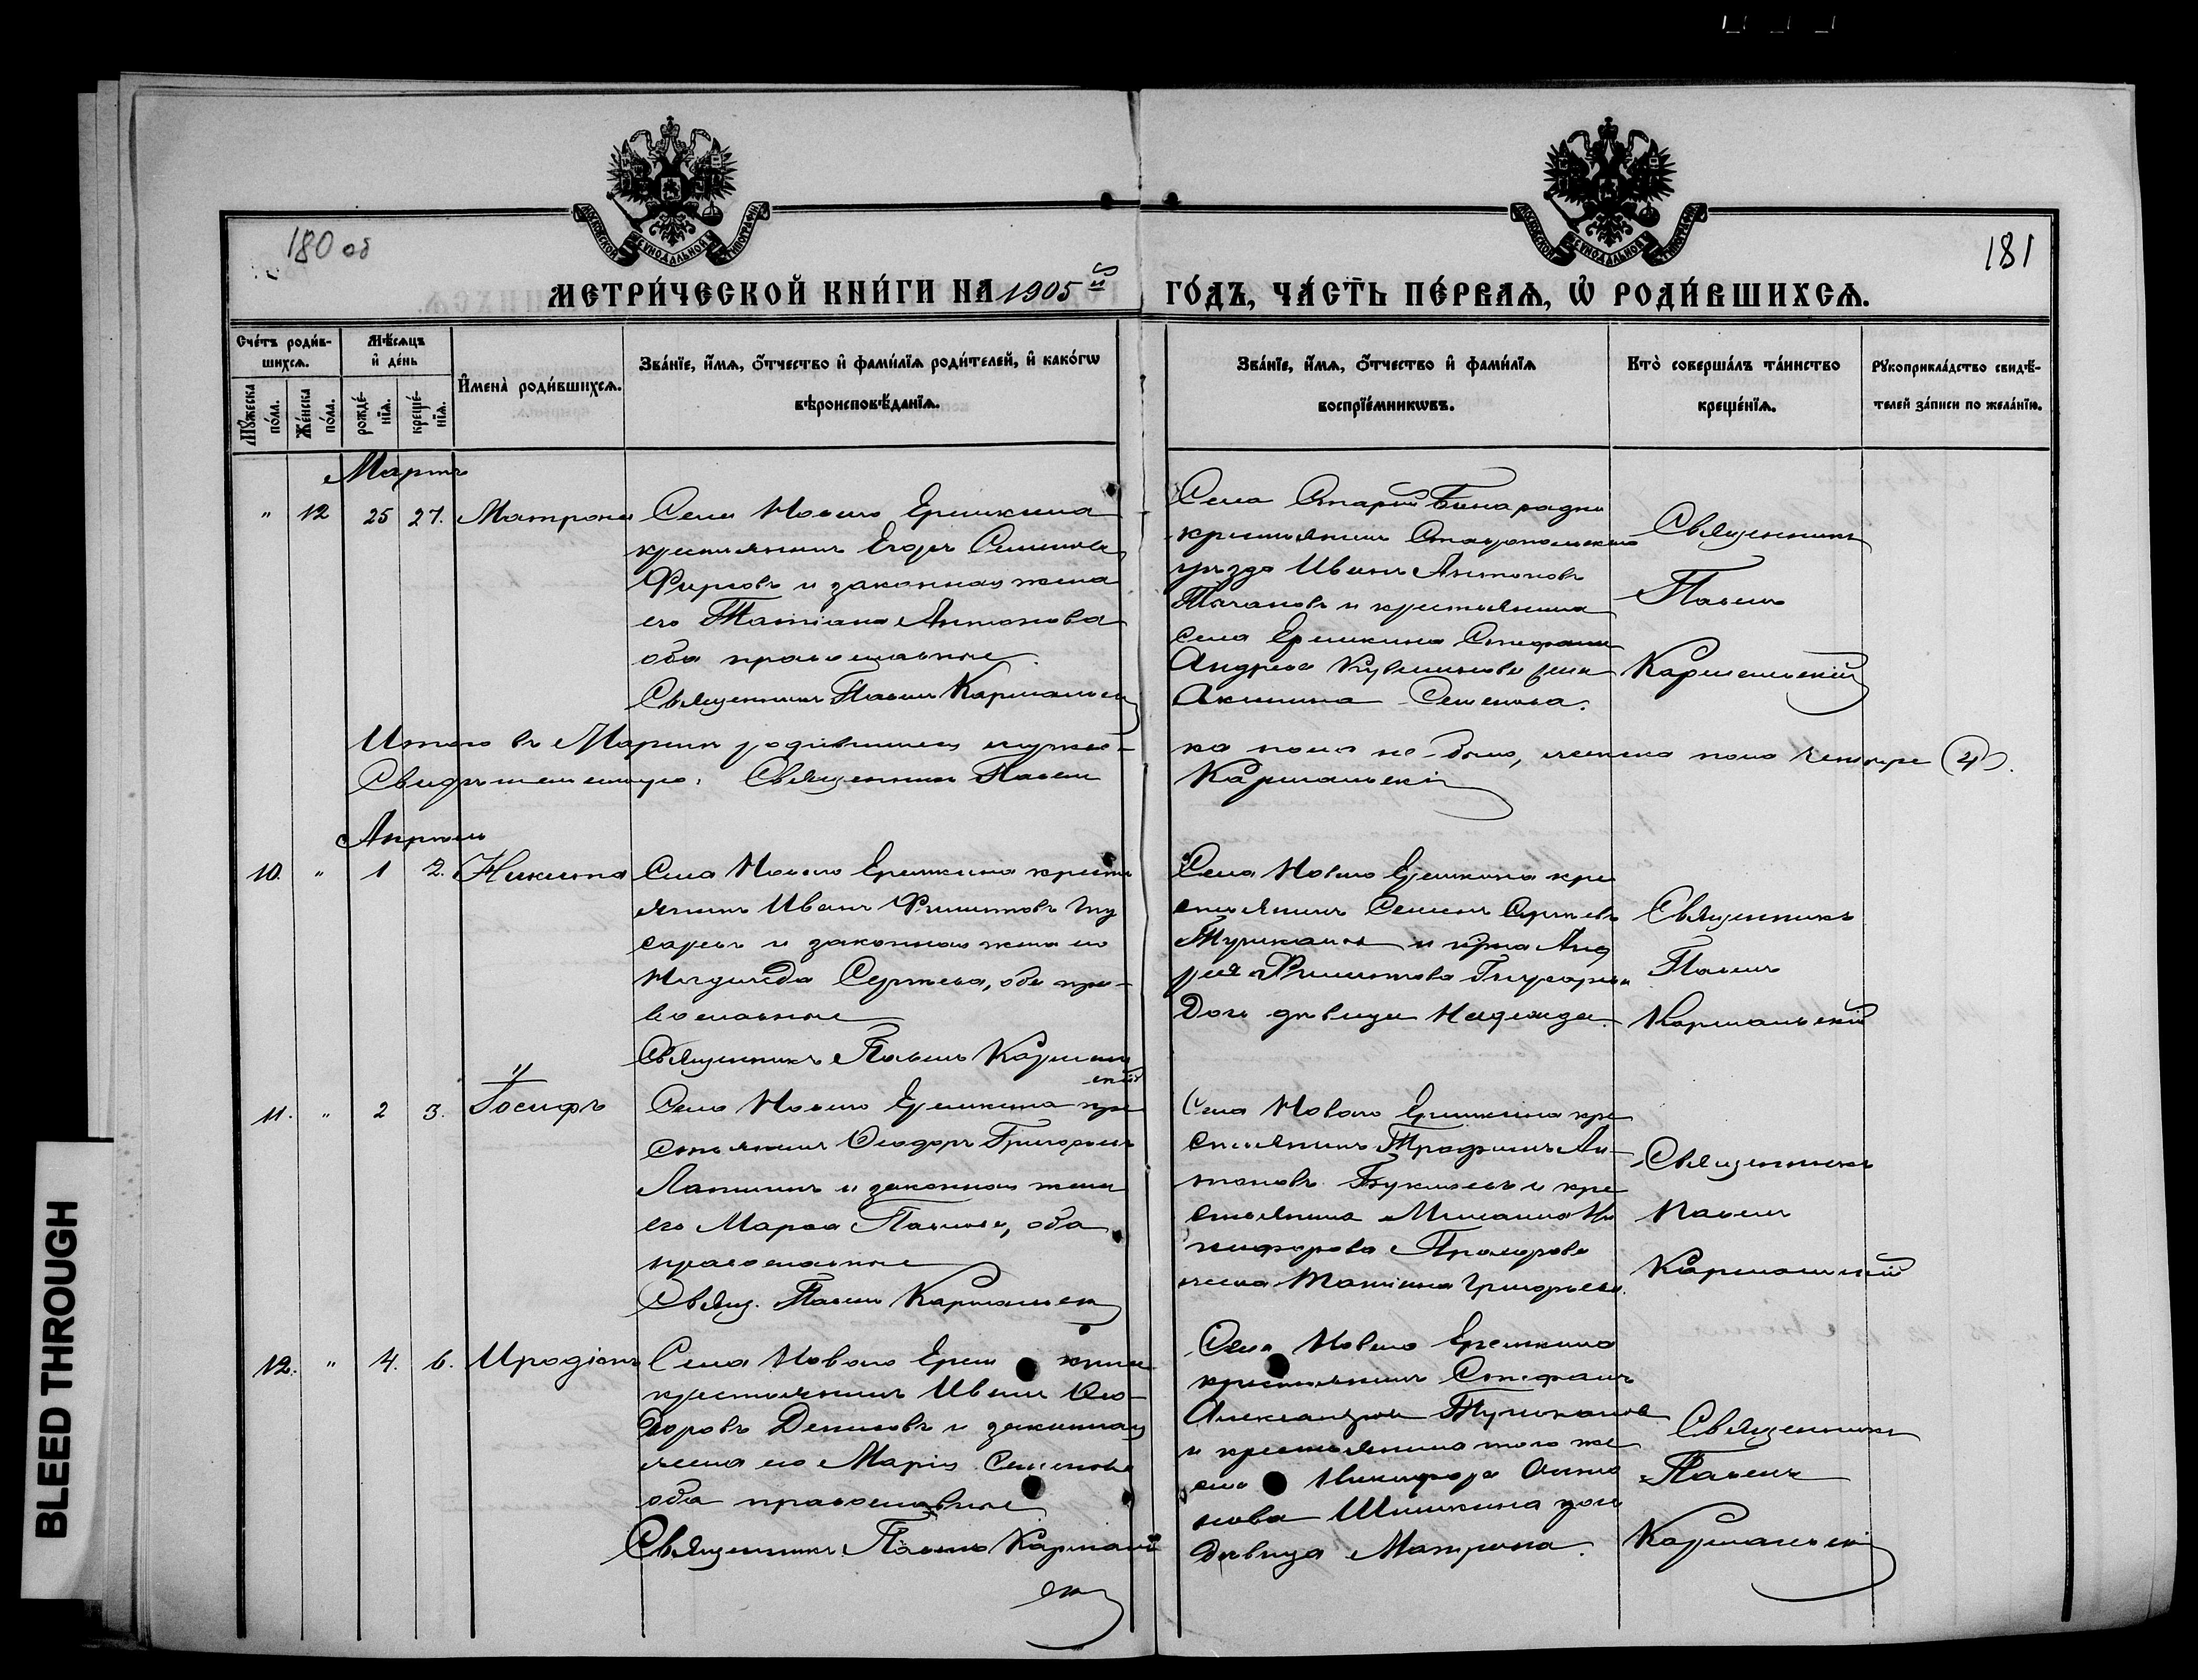 180 об
181
МОСКОВСКОЙ СѴНОДАЛЬНОЙ ТИПОГРАФІИ
МОСКОВСКОЙ СѴНОДАЛЬНОЙ ТИПОГРАФІИ
МЕТРИ́ЧЕСКОЙ КНИ́ГИ НА 1905й ГО́ДЪ, ЧА́СТЬ ПЕ́РВАѦ, Ѡ҆ РОДИ́ВШИХСѦ.
Сче́тъ роди́в-
шихсѧ.
Мѣ́сѧцъ
и҆ де́нь
Мꙋ́жеска
по́ла.
Же́нска
по́ла.
рожде́-
нїѧ.
креще́-
нїѧ.
И҆мена̀ роди́вшихсѧ.
Зва́нїе, и҆́мѧ, ѻ҆́тчество и҆ фами́лїѧ роди́телей, и҆ како́гѡ
вѣроисповѣ́данїѧ.
Зва́нїе, и҆́мѧ, ѻ҆́тчество и҆ фами́лїѧ
воспрїе́мникѡвъ.
Кто̀ соверша́лъ та́инство
креще́нїѧ.
Рꙋкоприкла́дство свидѣ́-
телей за́писи по жела́нїю.
Мартъ
" 12 25 27. Матрона
Села Новаго Еремкина
крестьянинъ Егоръ Семеновъ
Фирсовъ и законная жена
его Татіана Антонова
оба православные.
Священникъ Павелъ Кармальскій
Села Старой Бинарадки
крестьянинъ Ставропольскаго
уѣзда Иванъ Антоновъ
и крестьянина
села Еремкина Стефана
Андреева жена
Акилина Семенова.
Священникъ
Павелъ
Кармальскій
Итого въ Мартѣ родившихся мужес-
ка пола не было, женска пола четыре (4).
Свидѣтельствую: Священникъ Павелъ
Кармальскій
Апрѣль
10. " 1 2. Никита
Села Новаго Еремкина кресть
янинъ Иванъ Филиповъ Гу
саровъ и законная жена его
Надежда Сергѣева, оба пра-
вославные
Священникъ Павелъ Кармаль
скій
Села Новаго Еремкина кре
стьянинъ Семенъ Сергѣевъ
и кр-на Анд
рея Филипова Гусарова
дочь дѣвица Надежда.
Священникъ
Павелъ
Кармальскій
11. " 2 3. Іосифъ
Села Новаго Еремкина кре
стьянинъ Ѳеодоръ Григорьевъ
Лапшинъ и законная жена
его Марѳа Павлова, оба
православные
Свящ. Павелъ Кармальскій
Села Новаго Еремкина кре
стьянинъ Трофимъ Ан-
тоновъ и кре
стьянина Михаила Ни
кифорова Прохорова
жена Татіана Григорьева.
Священникъ
Павелъ
Кармальскій
12. " 4. 6. Иродіонъ
Села Новаго Ерем кина
крестьянинъ Иванъ Ѳео-
доровъ Денисовъ и законная
жена его Марія Семенова
оба православные
Священникъ Павелъ Кармаль
скій
Села Новаго Еремкина
крестьянинъ Стефанъ
Александровъ
и крестьянина того же
села Никифора
нова Шишкина дочь
дѣвица Матрона.
Священникъ
Павелъ
Кармальскій
BLEED THROUGH